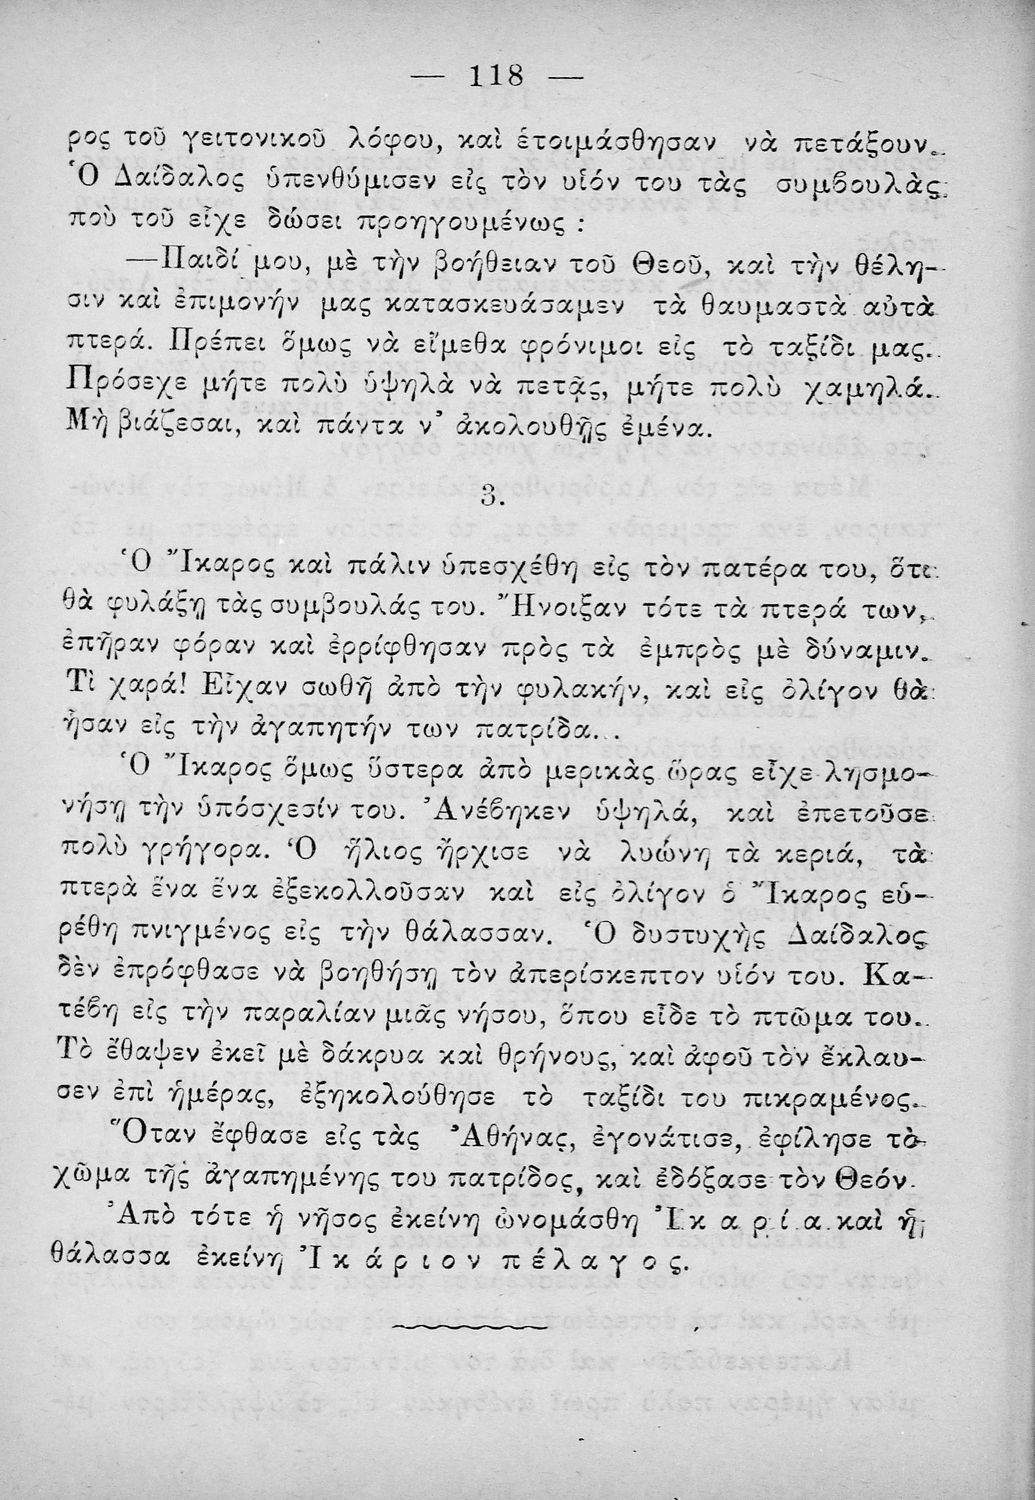 — 118 —
ρος τοῦ γειτονικοῦ λόφου, καὶ ἑτοιμάσθησαν νὰ πετάξουν.
Ὁ Δαίδαλος ὑπενθύμισεν εἰς τὸν υἱόν του τὰς συμβουλὰς
ποὺ τοῦ εἶχε δώσει προηγουμένως :
—Παιδί μου, μὲ τὴν βοήθειαν τοῦ Θεοῦ, καὶ τὴν θέλη-
σιν καὶ ἐπιμονήν μας κατασκευάσαμεν τὰ θαυμαστὰ αὐτὰ
πτερά. Πρέπει ὅμως νὰ εἴμεθα φρόνιμοι εἰς τὸ ταξίδι μας.
Πρόσεχε μήτε πολὺ ὑψηλὰ νὰ πετᾷς, μήτε πολὺ χαμηλά.
Μὴ βιάζεσαι, καὶ πάντα ν’ ἀκολουθῇς ἐμένα.
3.
Ὁ Ἴκαρος καὶ πάλιν ὑπεσχέθη εἰς τὸν πατέρα του, ὅτι
θὰ φυλάξῃ τὰς συμβουλάς του. Ἤνοιξαν τότε τὰ πτερά των,
ἐπῆραν φόραν καὶ ἐρρίφθησαν πρὸς τὰ ἐμπρὸς μὲ δύναμιν.
Τὶ χαρά! Εἶχαν σωθῆ ἀπὸ τὴν φυλακήν, καὶ εἰς ὀλίγον θὰ
ἦσαν εἰς τὴν ἀγαπητήν των πατρίδα...
Ὁ Ἴκαρος ὅμως ὕστερα ἀπὸ μερικὰς ὥρας εἶχε λησμο-
νήσῃ τὴν ὑπόσχεσίν του. Ἀνέβηκεν ὑψηλά, καὶ ἐπετοῦσε
πολὺ γρήγορα. Ὁ ἥλιος ἤρχισε νὰ λυώνῃ τὰ κεριά, τὰ
πτερὰ ἕνα ἕνα ἐξεκολλοῦσαν καὶ εἰς ὀλίγον ὁ Ἴκαρος εὑ-
ρέθη πνιγμένος εἰς τὴν θάλασσαν. Ὁ δυστυχὴς Δαίδαλος
δὲν ἐπρόφθασε νὰ βοηθήσῃ τὸν ἀπερίσκεπτον υἱόν του. Κα-
τέβη εἰς τὴν παραλίαν μιᾶς νήσου, ὅπου εἶδε τὸ πτῶμα του.
Τὸ ἔθαψεν ἐκεῖ μὲ δάκρυα καὶ θρήνους, καὶ ἀφοῦ τὸν ἔκλαυ-
σεν ἐπὶ ἡμέρας, ἐξηκολούθησε τὸ ταξίδι του πικραμένος.
Ὅταν ἔφθασε εἰς τὰς Ἀθήνας, ἐγονάτισε, ἐφίλησε τὸ
χῶμα τῆς ἀγαπημένης του πατρίδος, καὶ ἐδόξασε τὸν Θεόν.
Ἀπὸ τότε ἡ νῆσος ἐκείνη ὠνομάσθη Ἰ κ α ρ ί α καὶ ἡ
θάλασσα ἐκείνη Ἰ κ ά ρ ι ο ν π έ λ α γ ο ς.